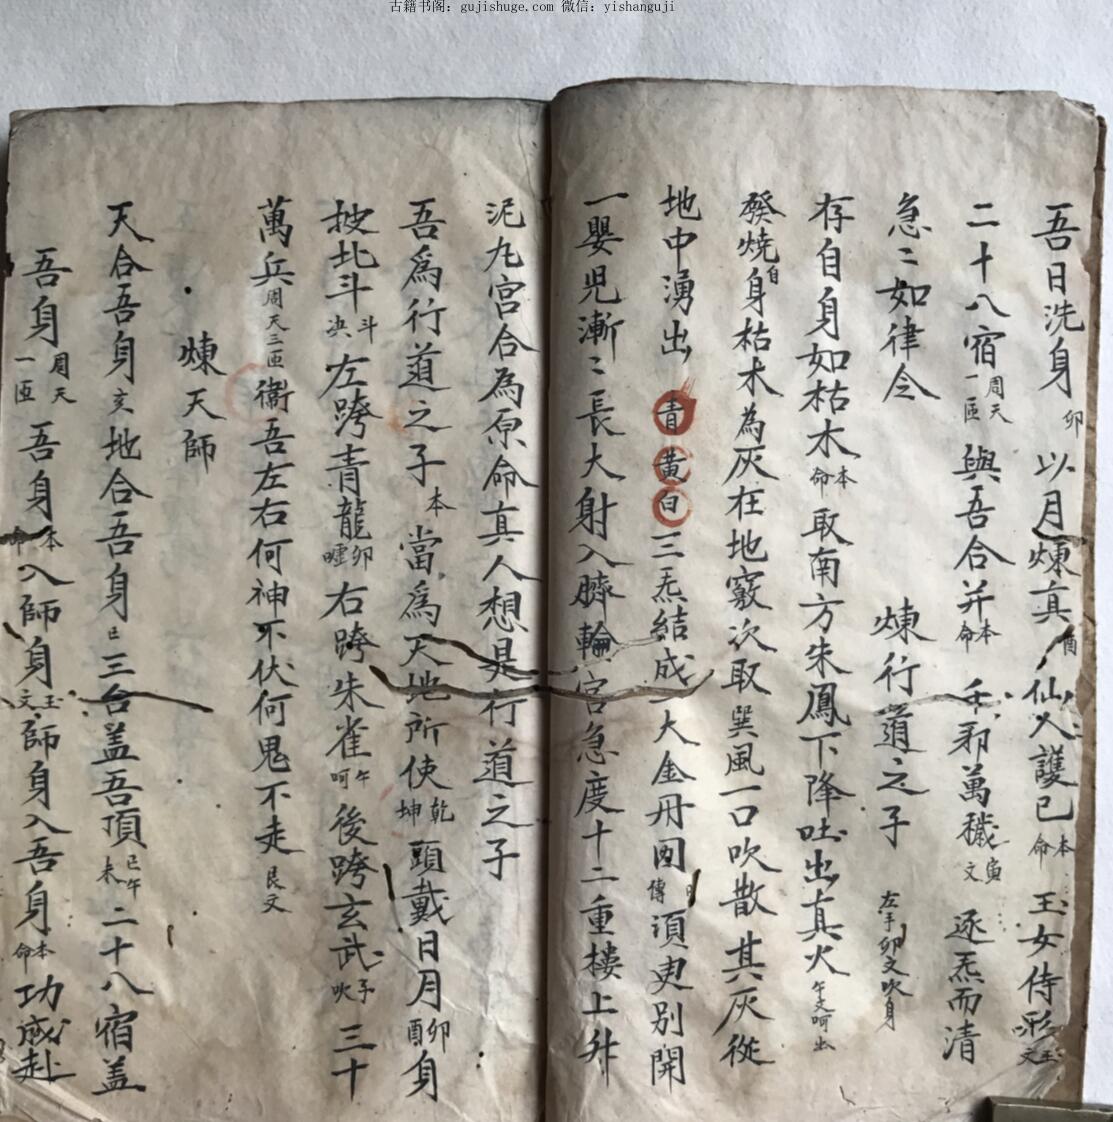 古籍书阁：gujishuge.com 微信：yishanguji
吾日洗身卯以月煉真酉仙人護已本命玉女侍形玉文
二十八宿周天一匝與吾合并本命壬邪萬穢寅文逐炁而清
急〻如律令 煉行道之子 左手卯文吹身
存自身如枯木本命取南方朱鳳下降吐出真火午文呵出
發燒自身枯木為灰在地竅次取巽風一口吹散其灰從
地中湧出青黃白三炁結成一大金丹圓須更別開
一嬰児漸〻長大射入臍輪宮急度十二重樓上升
泥丸宮合為原命真人想是行道之子
吾爲行道之子本當爲天地所使乾坤頭戴日月卯酉身
披北斗斗決左跨青龍卯嘘右跨朱雀午呵後跨玄武子吹三十
萬兵周天三匝衛吾左右何神不伏何鬼不走艮文
煉天師
天合吾身亥地合吾身巳三台盖吾頂巳午未二十八宿盖
吾身周天一匝吾身本命入師身玉文師身入吾身本命功成赴